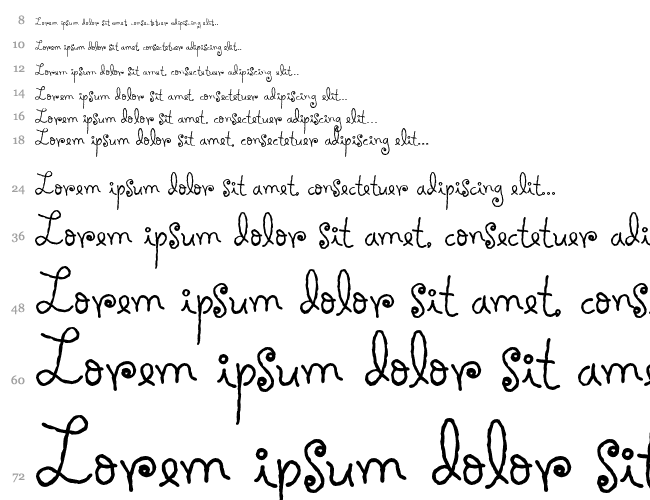 8 Lorem ipsum dolor sit amet, consectetuer adipiscing elit...
10 Lorem ipsum dolor sit amet, consectetuer adipiscing elit...
12 Lorem ipsum dolor sit amet, consectetuer adipiscing elit...
14 Lorem ipsum dolor sit amet, consectetuer adipiscing elit...
16 Lorem ipsum dolor sit amet, consectetuer adipiscing elit...
18 Lorem ipsum dolor sit amet, consectetuer adipiscing elit...
24 Lorem ipsum dolor sit amet, consectetuer adipiscing elit...
36 Lorem ipsum dolor sit amet, consectetuer adi
48 Lorem ipsum dolor sit amet, cons
60 Lorem ipsum dolor sit ame
72 Lorem ipsum dolor sit